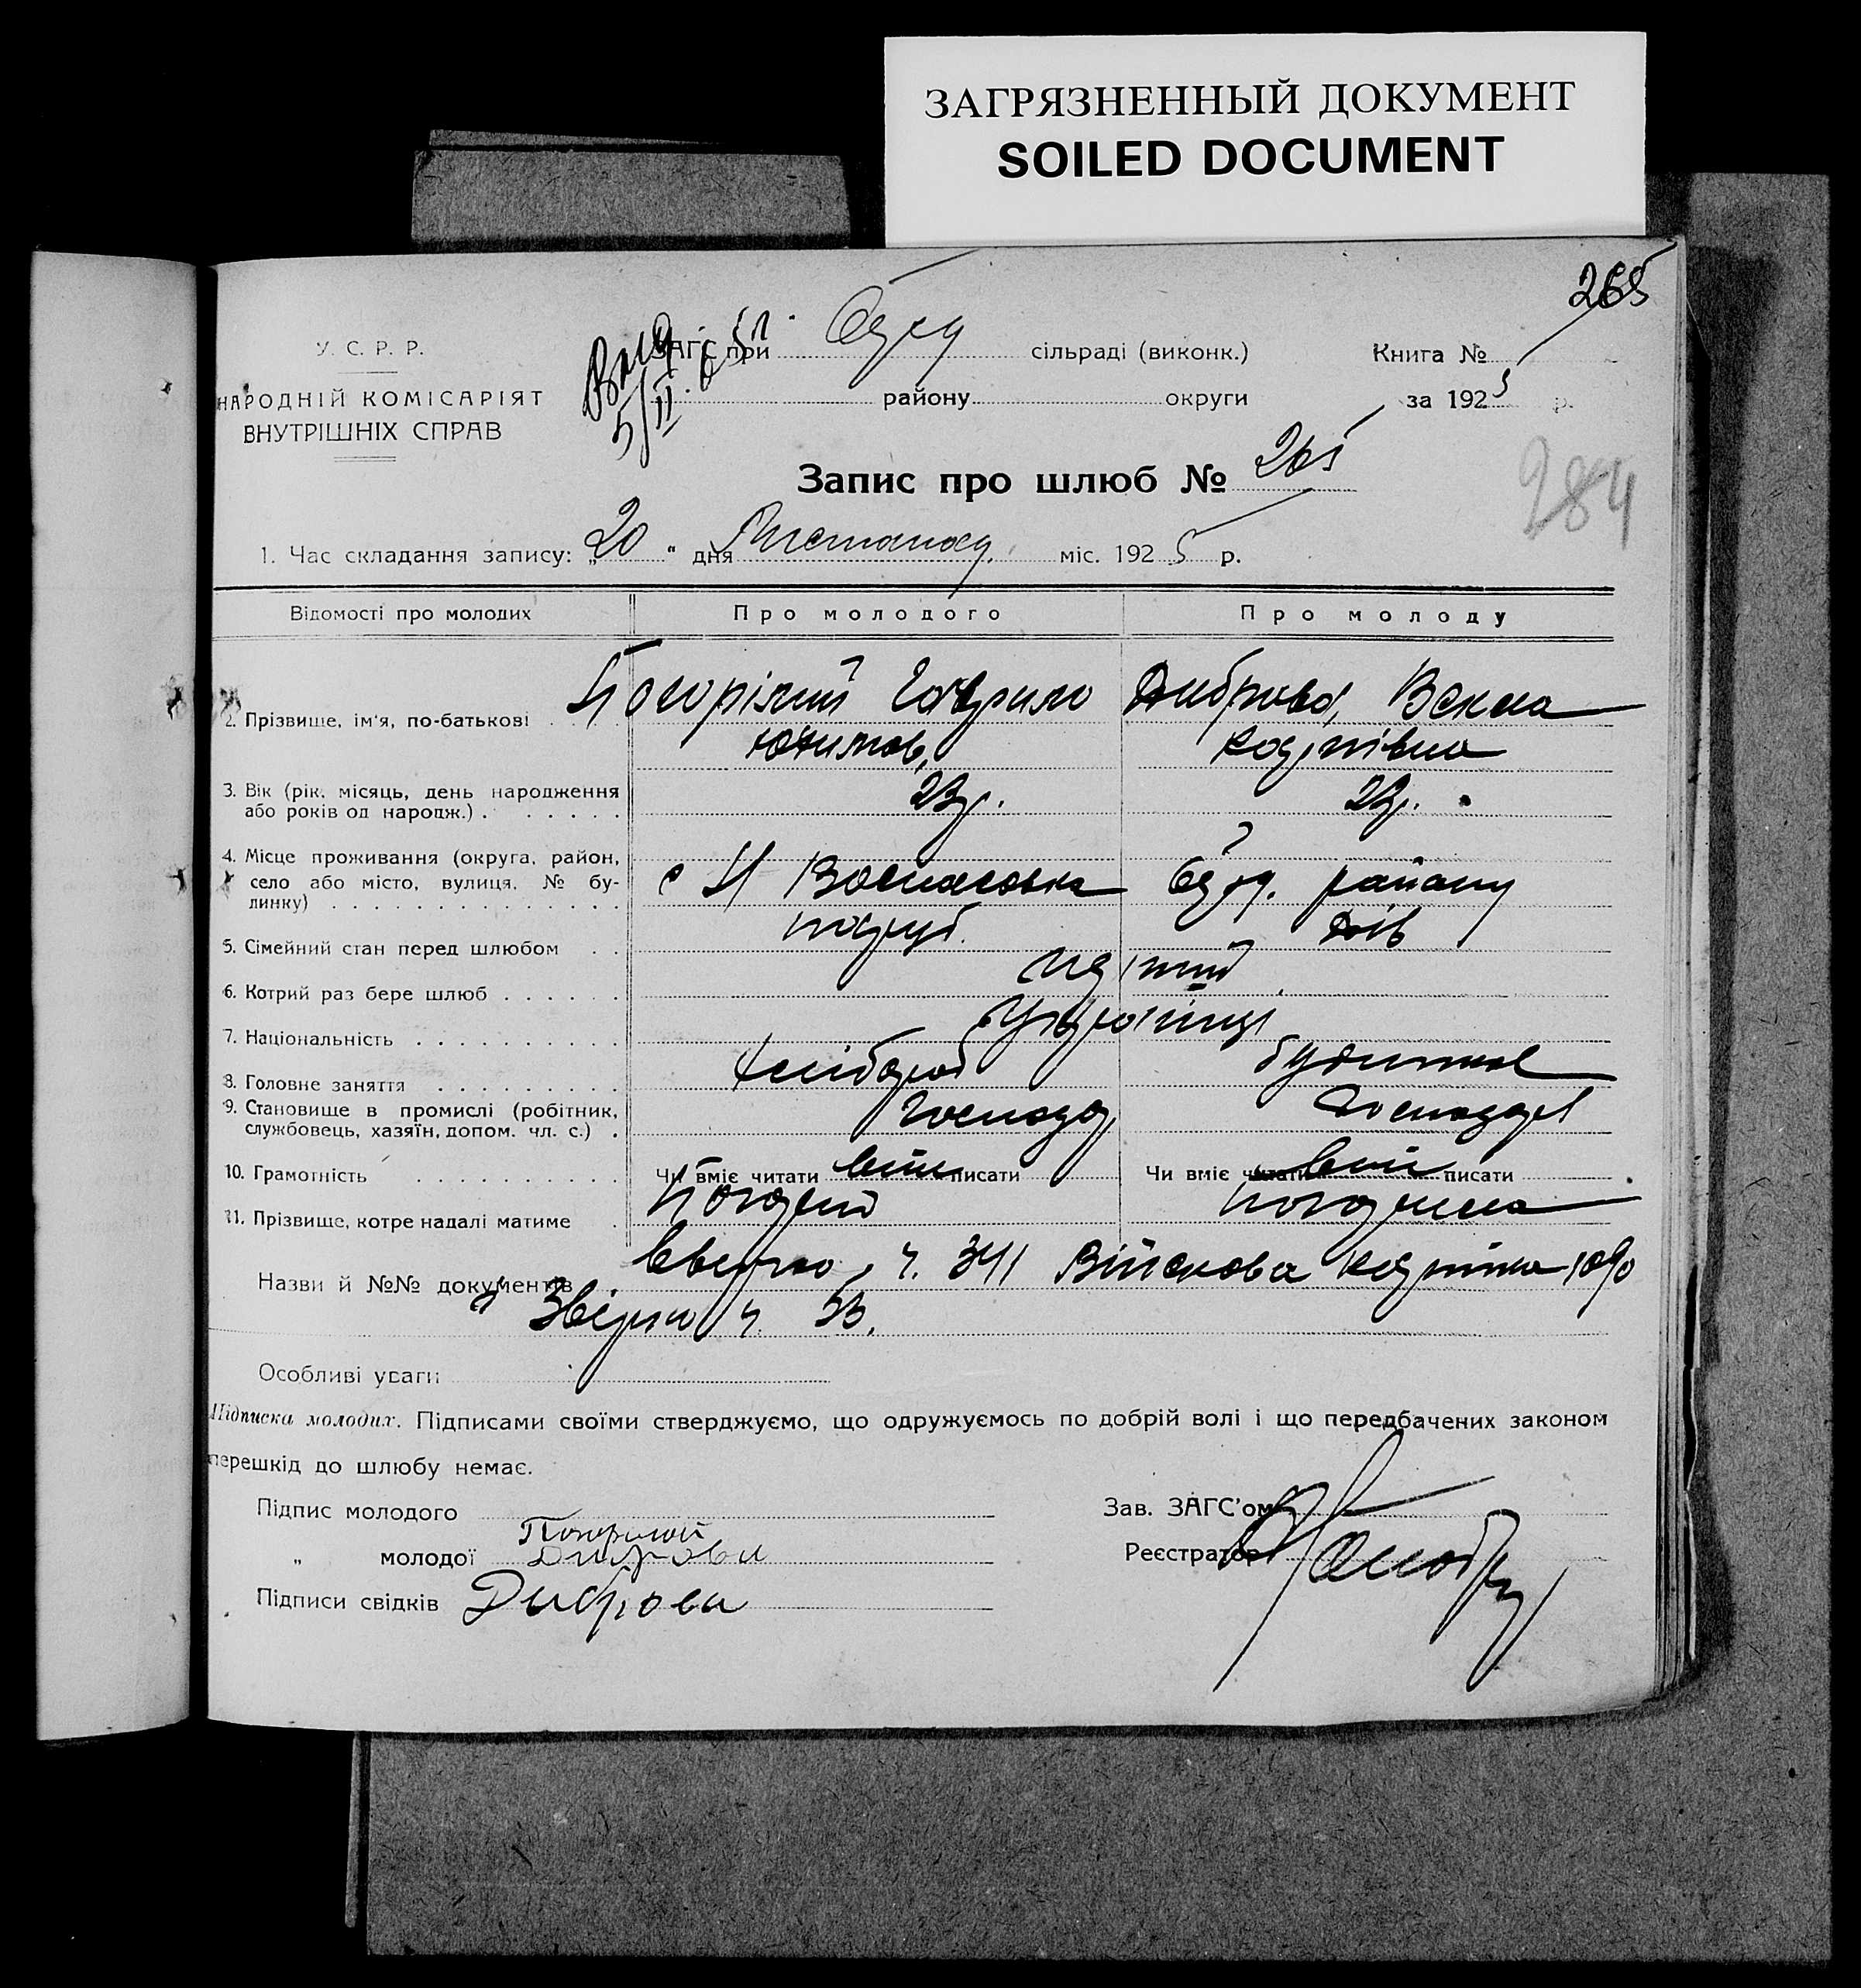 ЗАГРЯЗНЕННЫЙ ДОКУМЕНТ
SOILED DOCUMENT
265
У. С. Р. Р.
НАРОДНІЙ КОМІСАРІЯТ
ВНУТРІШНІХ СПРАВ
ЗАГС при сільраді (виконк.)
району округи
Книга №
за 1925 р.
5/II
Запис про шлюб № 265
284
1. Час складання запису: „20 " дня Листопаду міс. 1925 р.
Відомості про молодих Про молодого Про молоду
2. Прізвище, ім'я, по-батькові Погорілий Гаврило Диброва, Векла
Юхимов, Карпівна
3. Вік (рік, місяць, день народження
або років од народж.) 23 р. 23 р.
4. Місце проживання (округа, район,
село або місто, вулиця, № бу-
динку) с Н району
5. Сімейний стан перед шлюбом паруб. дів
6. Котрий раз бере шлюб перший
7. Національність українці
8. Головне заняття хлібороб
9. Становище в промислі (робітник,
службовець, хазяїн, допом. чл. с.)
10. Грамотність Чи вміє читати писати Чи вміє читати писати
11. Прізвище, котре надалі матиме
Назви й №№ документів ч. 341 Військова картка 1090
ч. 53.
Особливі уваги
Підписка молодих. Підписами своїми стверджуємо, що одружуємось по добрій волі і що передбачених законом
перешкід до шлюбу немає.
Підпис молодого
Погорилий
„ молодої Диброва
Підписи свідків Диброва
Зав. ЗАГС'ом
Реєстратор